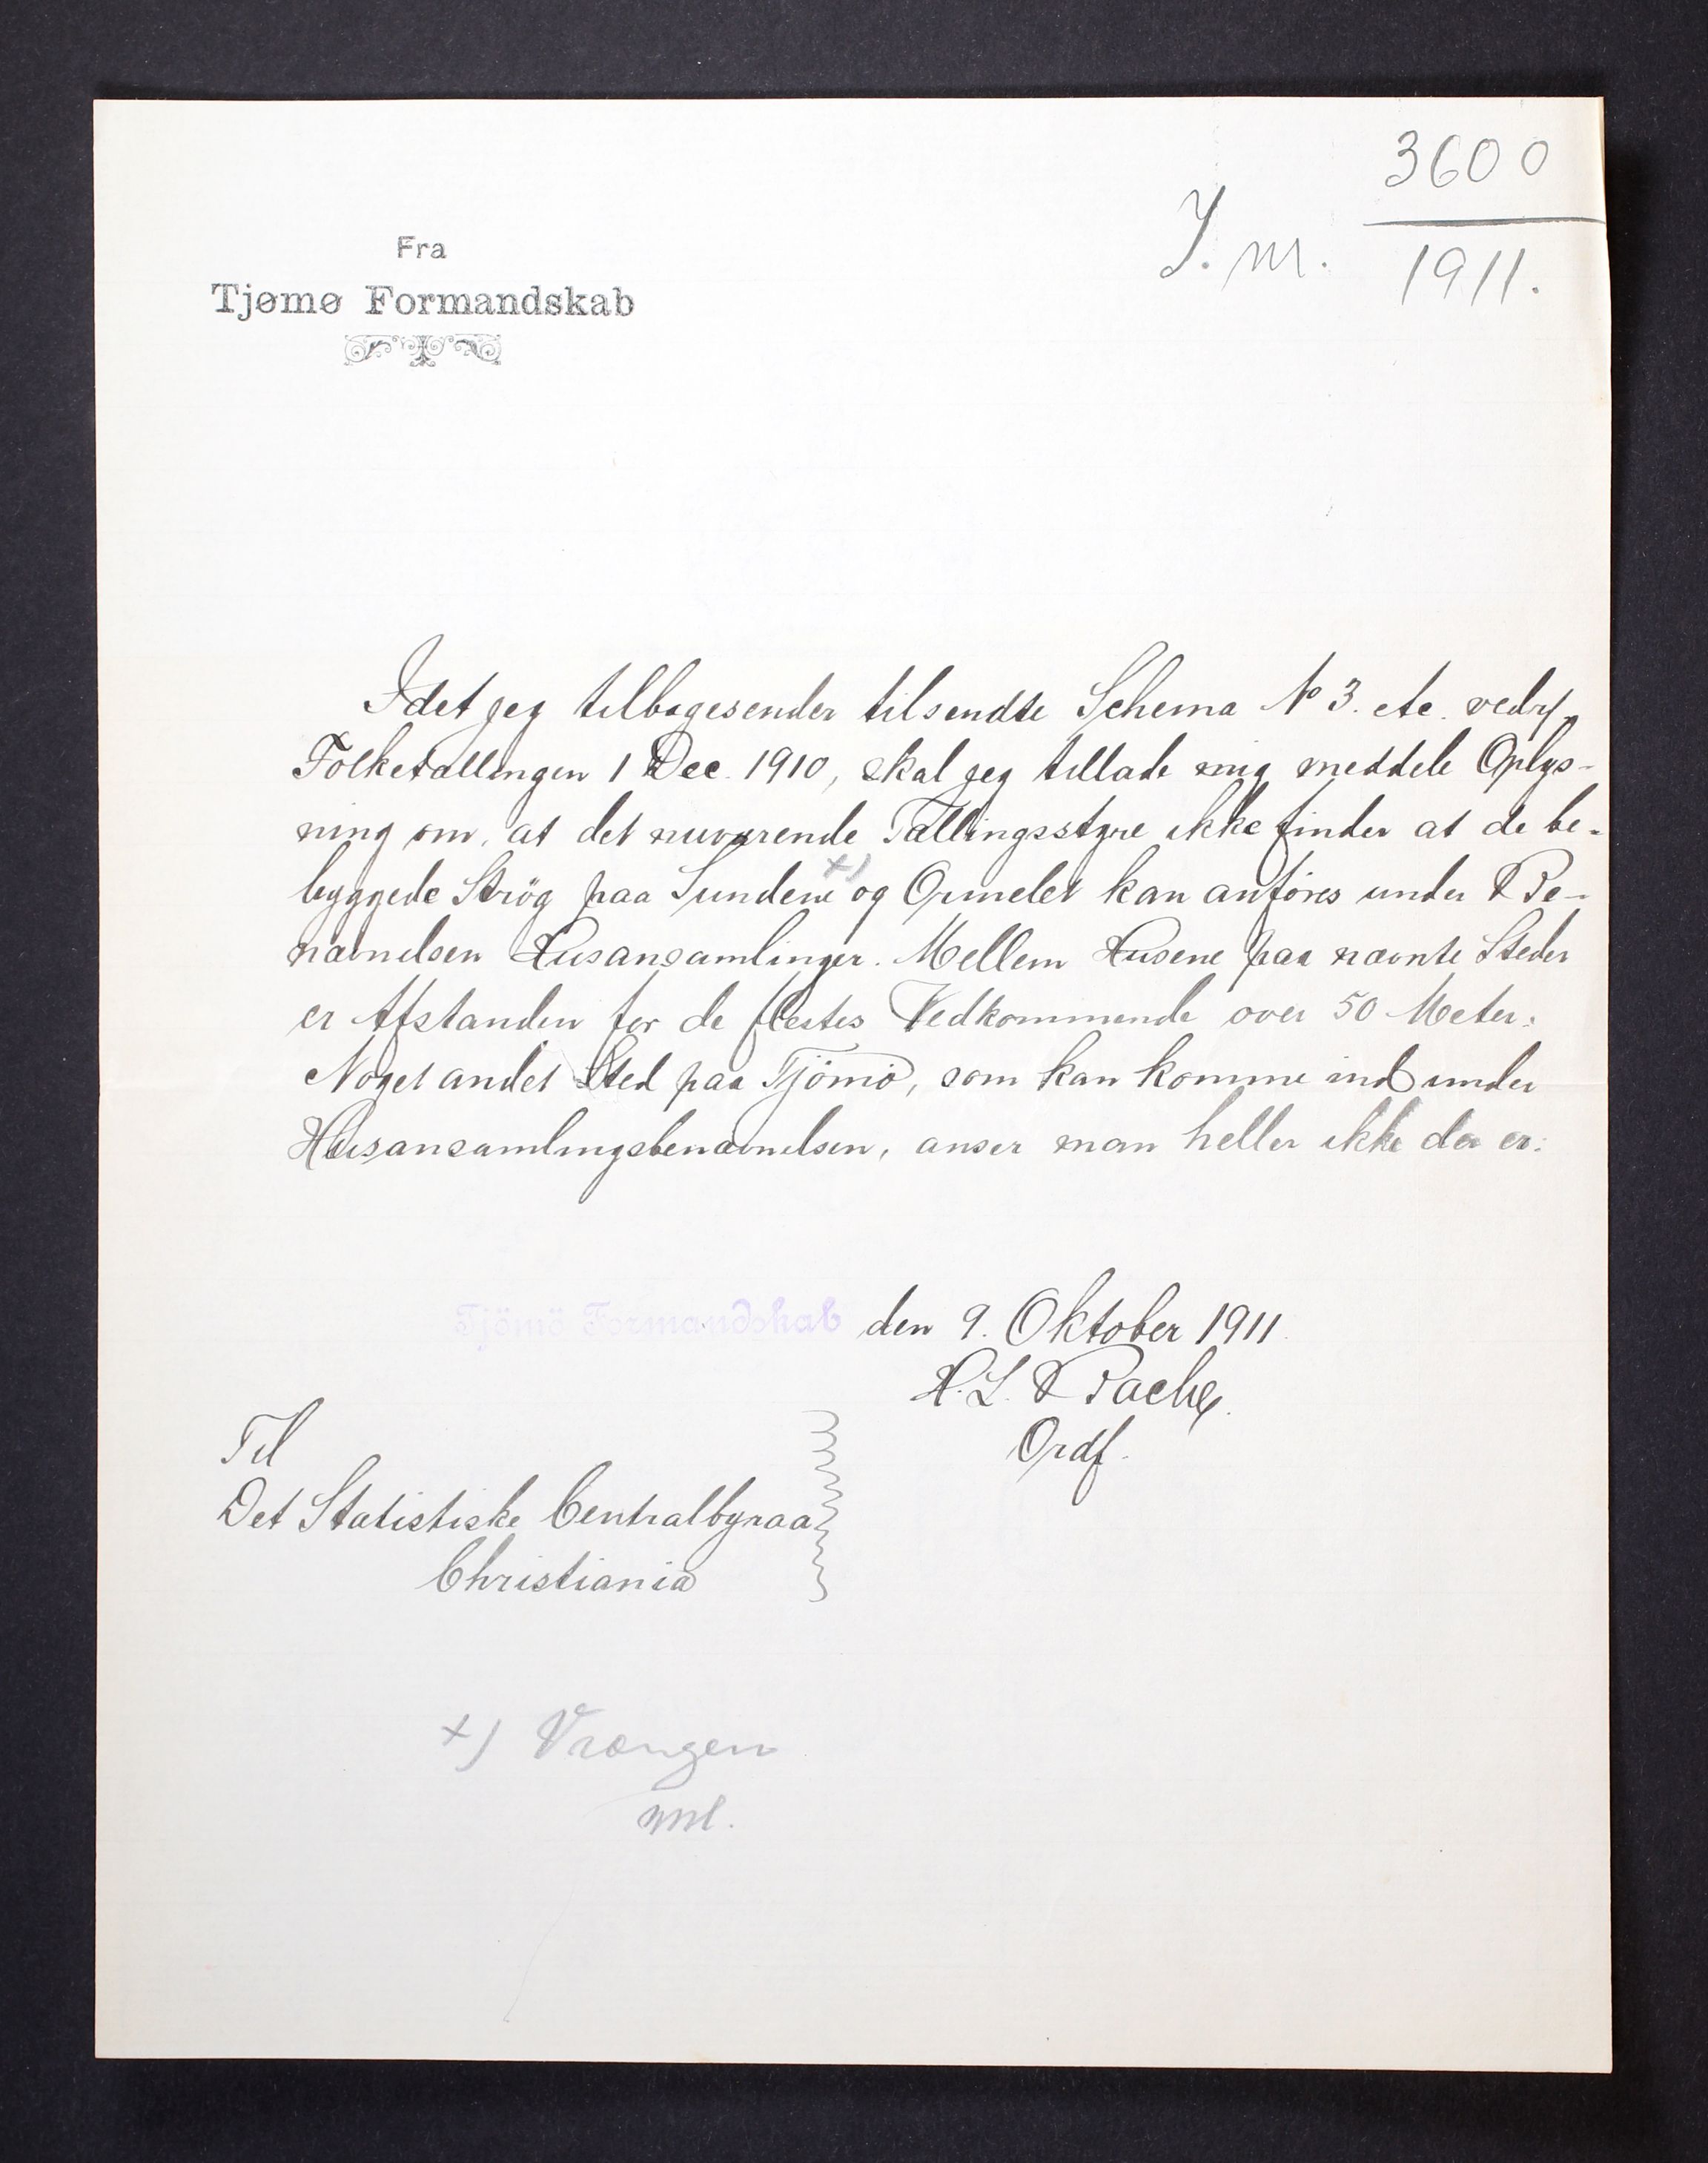 3600
J. nr. 1911.
Fra
Tjømø Formandskab
Idet jeg tilbagesender tilsendte Schema No 3. etc. vedr.
Folketællingen 1 Dec. 1910, skal jeg tillade mig meddele Oplys-
ning om, at det nuværende Tællingsstyre ikke finder at de be-
byggede Strög paa Sundene x) og Ormelet kan anföres under Be-
nævnelsen Husansamlinger. Mellem Husene paa nævnte Steder
er Afstanden for de flestes Vedkommende over 50 Meter.
Noget andet Sted paa Tjömö, som kan komme ind under
Husansamlingsbenævnelsen, anser man heller ikke der er.
Tjömö Formandskab den 9. Oktober 1911
H. L. Bache
Ordf.
Til
Det Statistiske Centralbyraa
Christiania
x) Vrængen